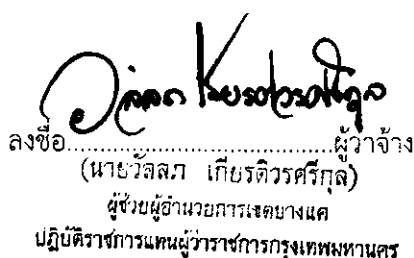 วัลลภ เกียรติวรศรีกุล
ลงชื่อ.......................................ผู้ว่าจ้าง
(นายวัลลภ เกียรติวรศรีกุล)
ผู้ช่วยผู้อำนวยการเขตบางแค
ปฏิบัติราชการแทนผู้ว่าราชการกรุงเทพมหานคร